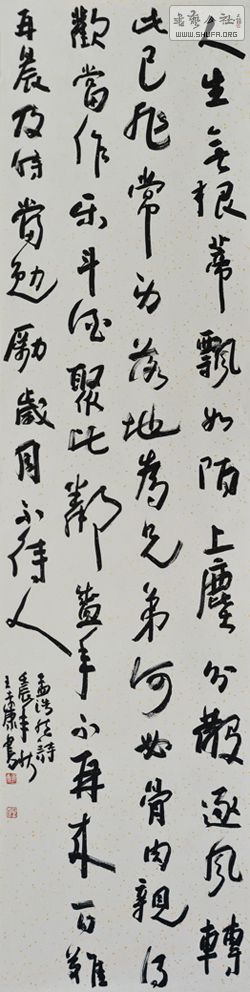 書藝公社
WWW.SHUFA.ORG
人生無根蒂飄如陌上塵分散逐风轉
此已非常身落地為兄弟何必骨肉親得
歡當作乐斗酒聚比鄰盛年不再来一日難
再晨及時當勉勵歲月不待人
孟浩然詩